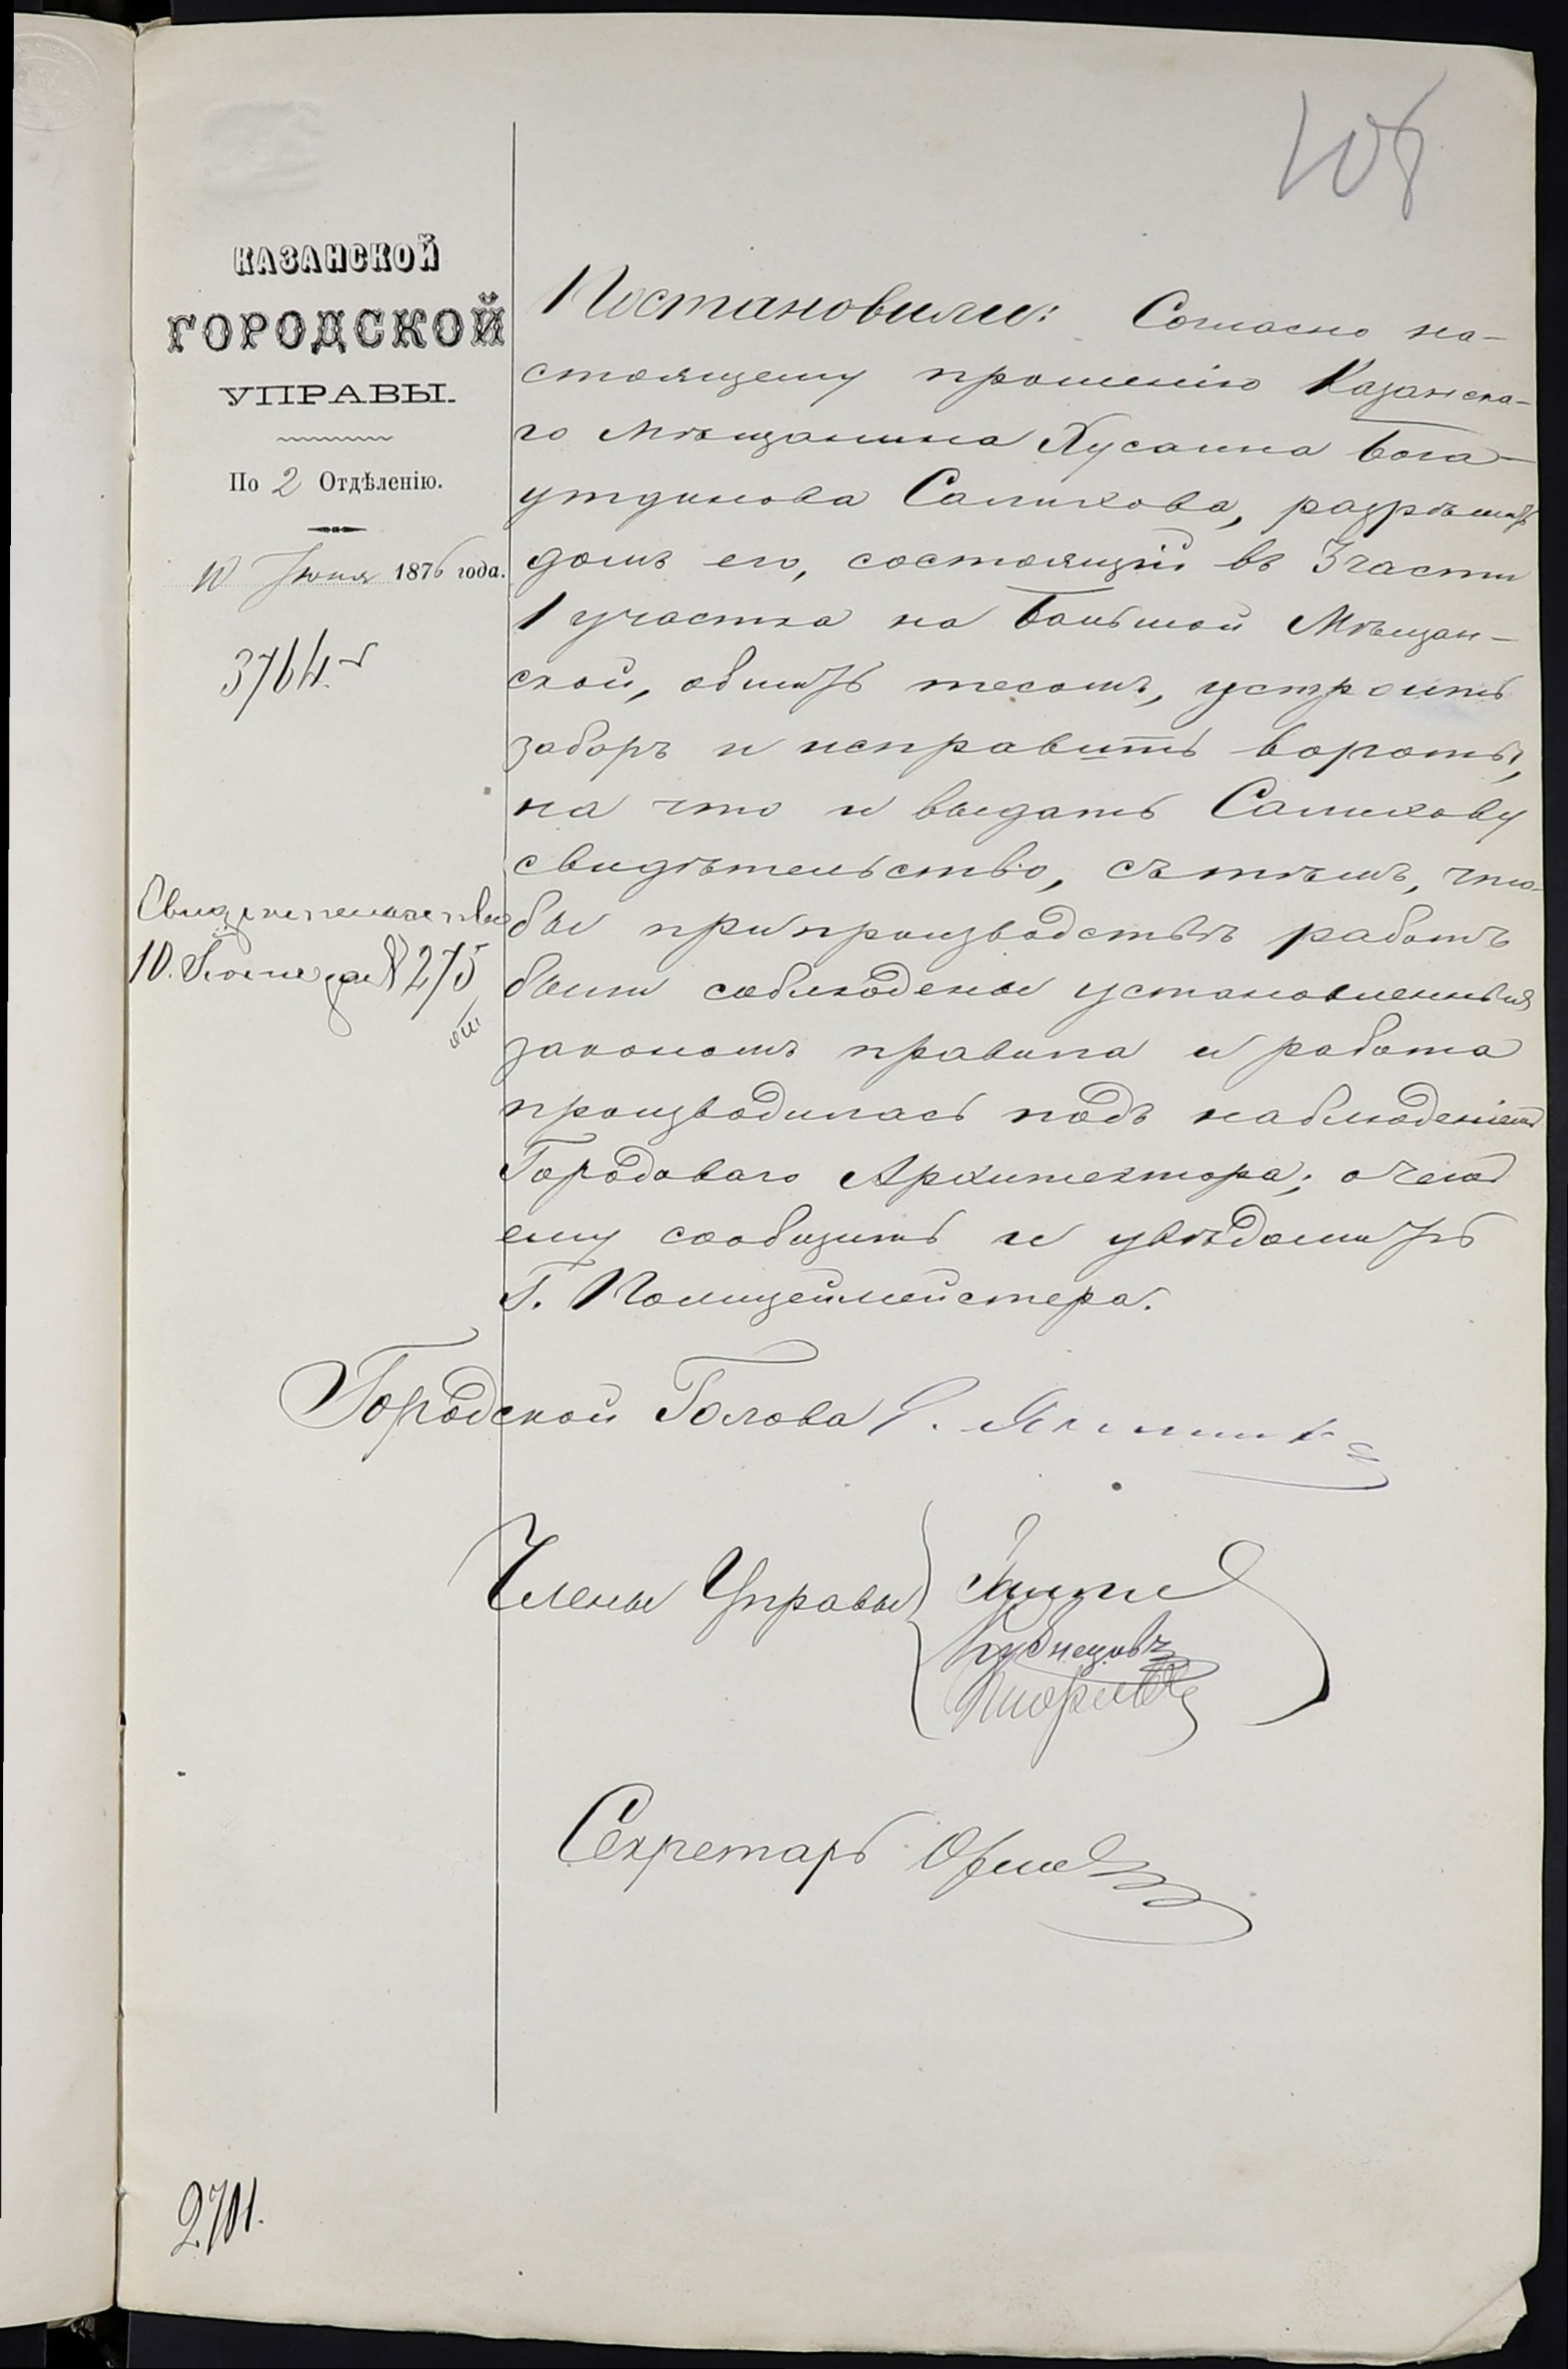 108
КАЗАНСКОЙ
ГОРОДСКОЙ
УПРАВЫ.
По 2 Отдѣленію.
10 Іюня 1876 года.
3764
Свидетельство
10 Іюня за № 275
Постановили: Согласно на-
стоящему прошенію Казанска-
го Мѣщанина Хусаина Бога-
утдинова Салихова, разрѣшить
домъ его, состоящій въ 3 части
1 участка на Большой Мѣщан-
ской, обшить тесомъ, устроить
заборъ и исправить вороты,
на что и выдать Салихову
свидѣтельство, съ тѣмъ, что-
бы при производствѣ работъ
были соблюдены установленныя
закономъ правила и работа
производилась подъ наблюденіемъ
Городоваго Архитектора; о чемъ
ему сообщить и увѣдомить
Г. Полицеймейстера.
Городской Голова
Члены Управы
Кузнецовъ
Секретарь
2701.